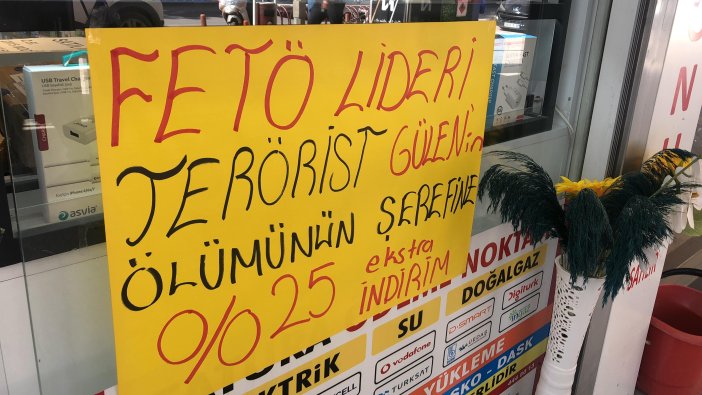 FETÖ LİDERİ
TERÖRİST GÜLEN'in
ÖLÜMÜNÜN ŞEREFİNE
%25 ekstra İNDİRİM
USB Travel Charger
asvia
NOKTA
SU
DOĞALGAZ
D-SMART
Digiturk
vodafone
TÜRKSAT
KTRİK
CELL
YÜKLEME
SKO - DASK